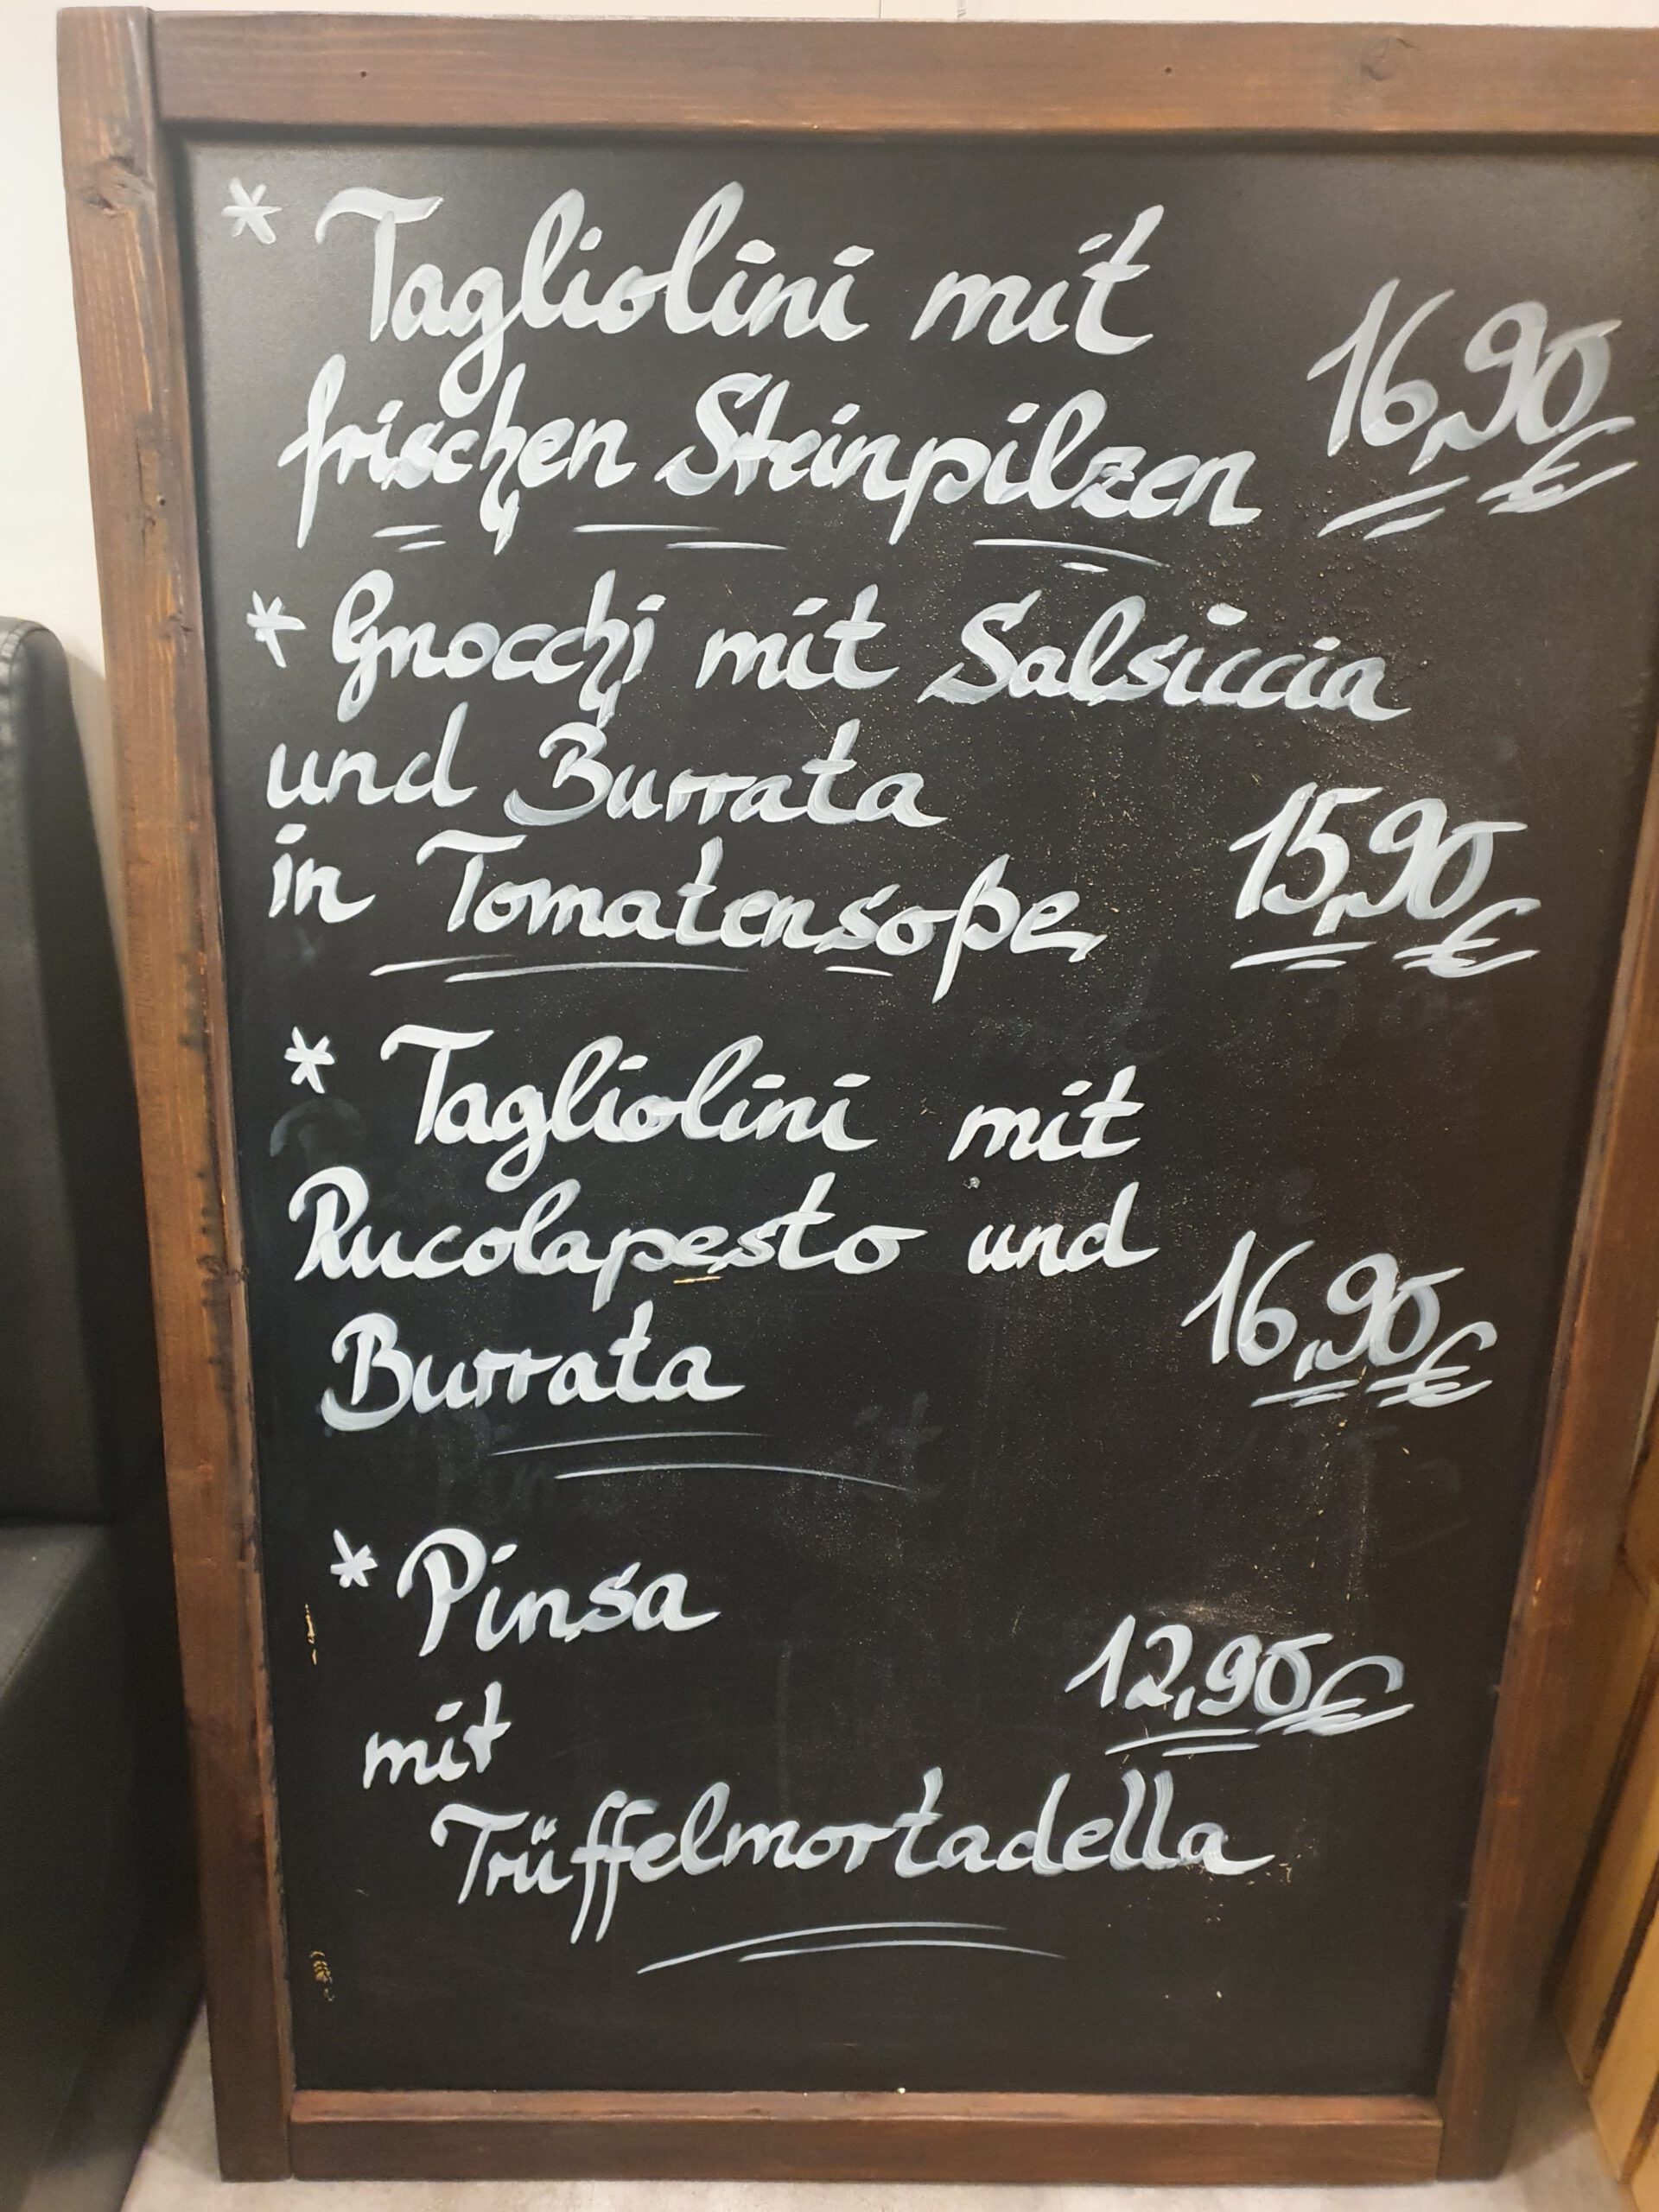 * Tagliolini mit
frischen Steinpilzen 16,90 €
* Gnocchi mit Salsiccia
und Burrata
in Tomatensoße, 15,90 €
* Tagliolini mit
Rucolapesto und
Burrata 16,90 €
* Pinsa
12,90 €
mit
Trüffelmortadella